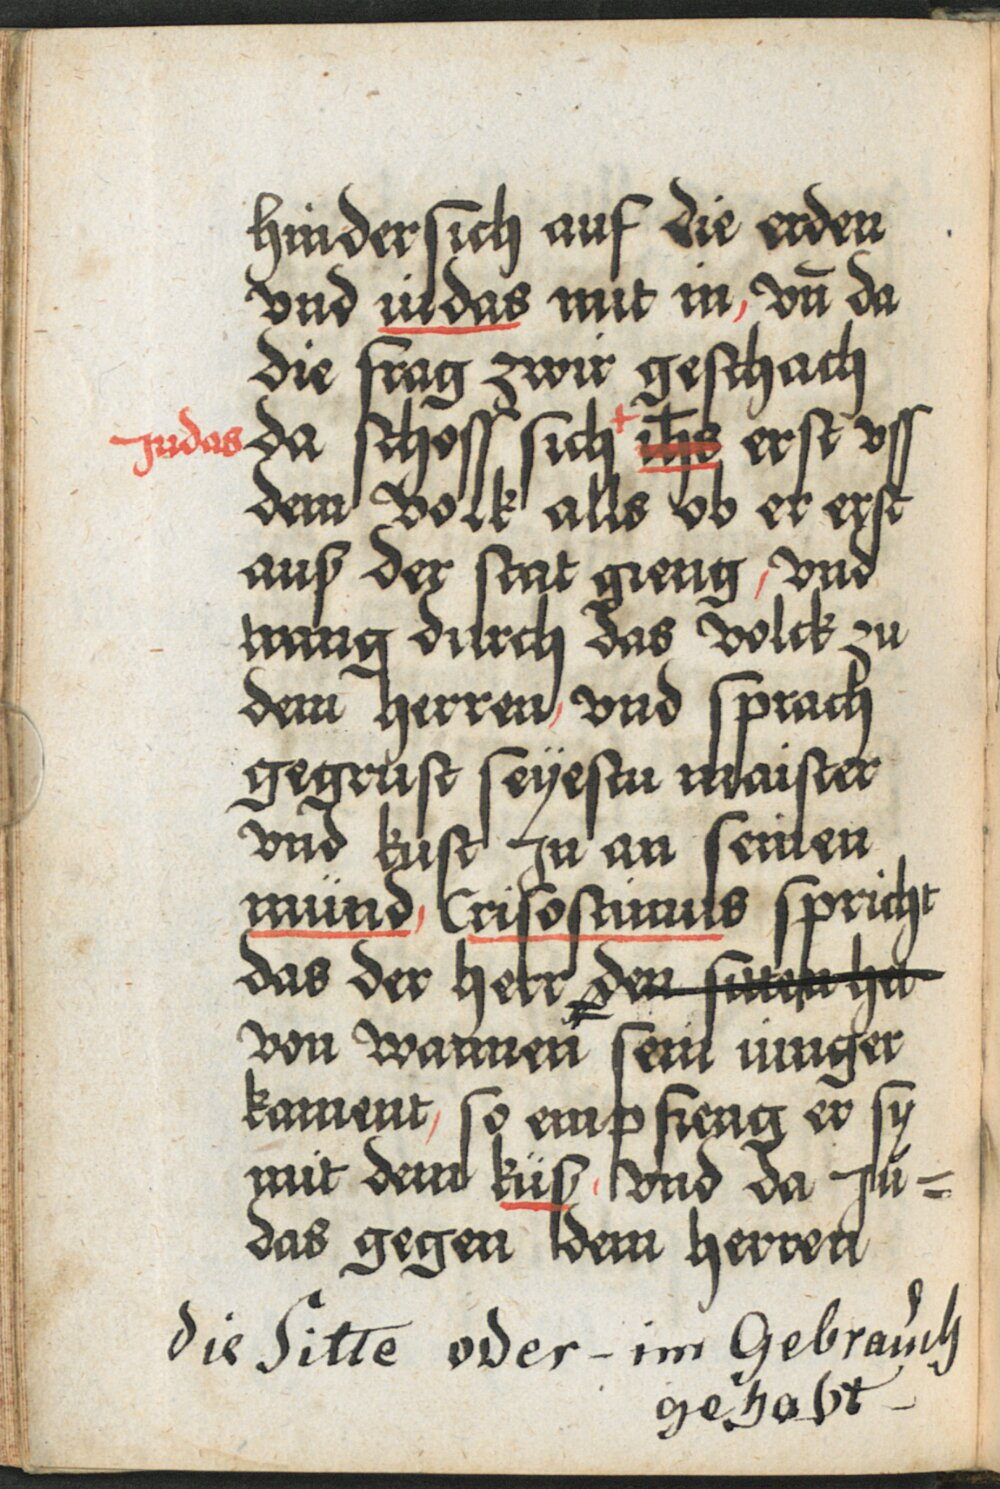 hindersich auf die erden
vnd iudas mit in, vn̄ da
die frag zwir geschach
Judas da schoss sich + ihs erst vss
dem volk alls ob er erst
auß der stat gieng, vnd
trang durch das volck zu
dem herren, vnd sprach
gegrust seÿestu maister
vnd kust Jn an seinen
mund, Crisostimus spricht
das der herr den sitten het
von wannen sein iunger
kament, so empfieng er sy
mit dem kuß, vnd da Ju=
das gegen dem herren
die Sitte oder - im Gebrauch
gehabt -